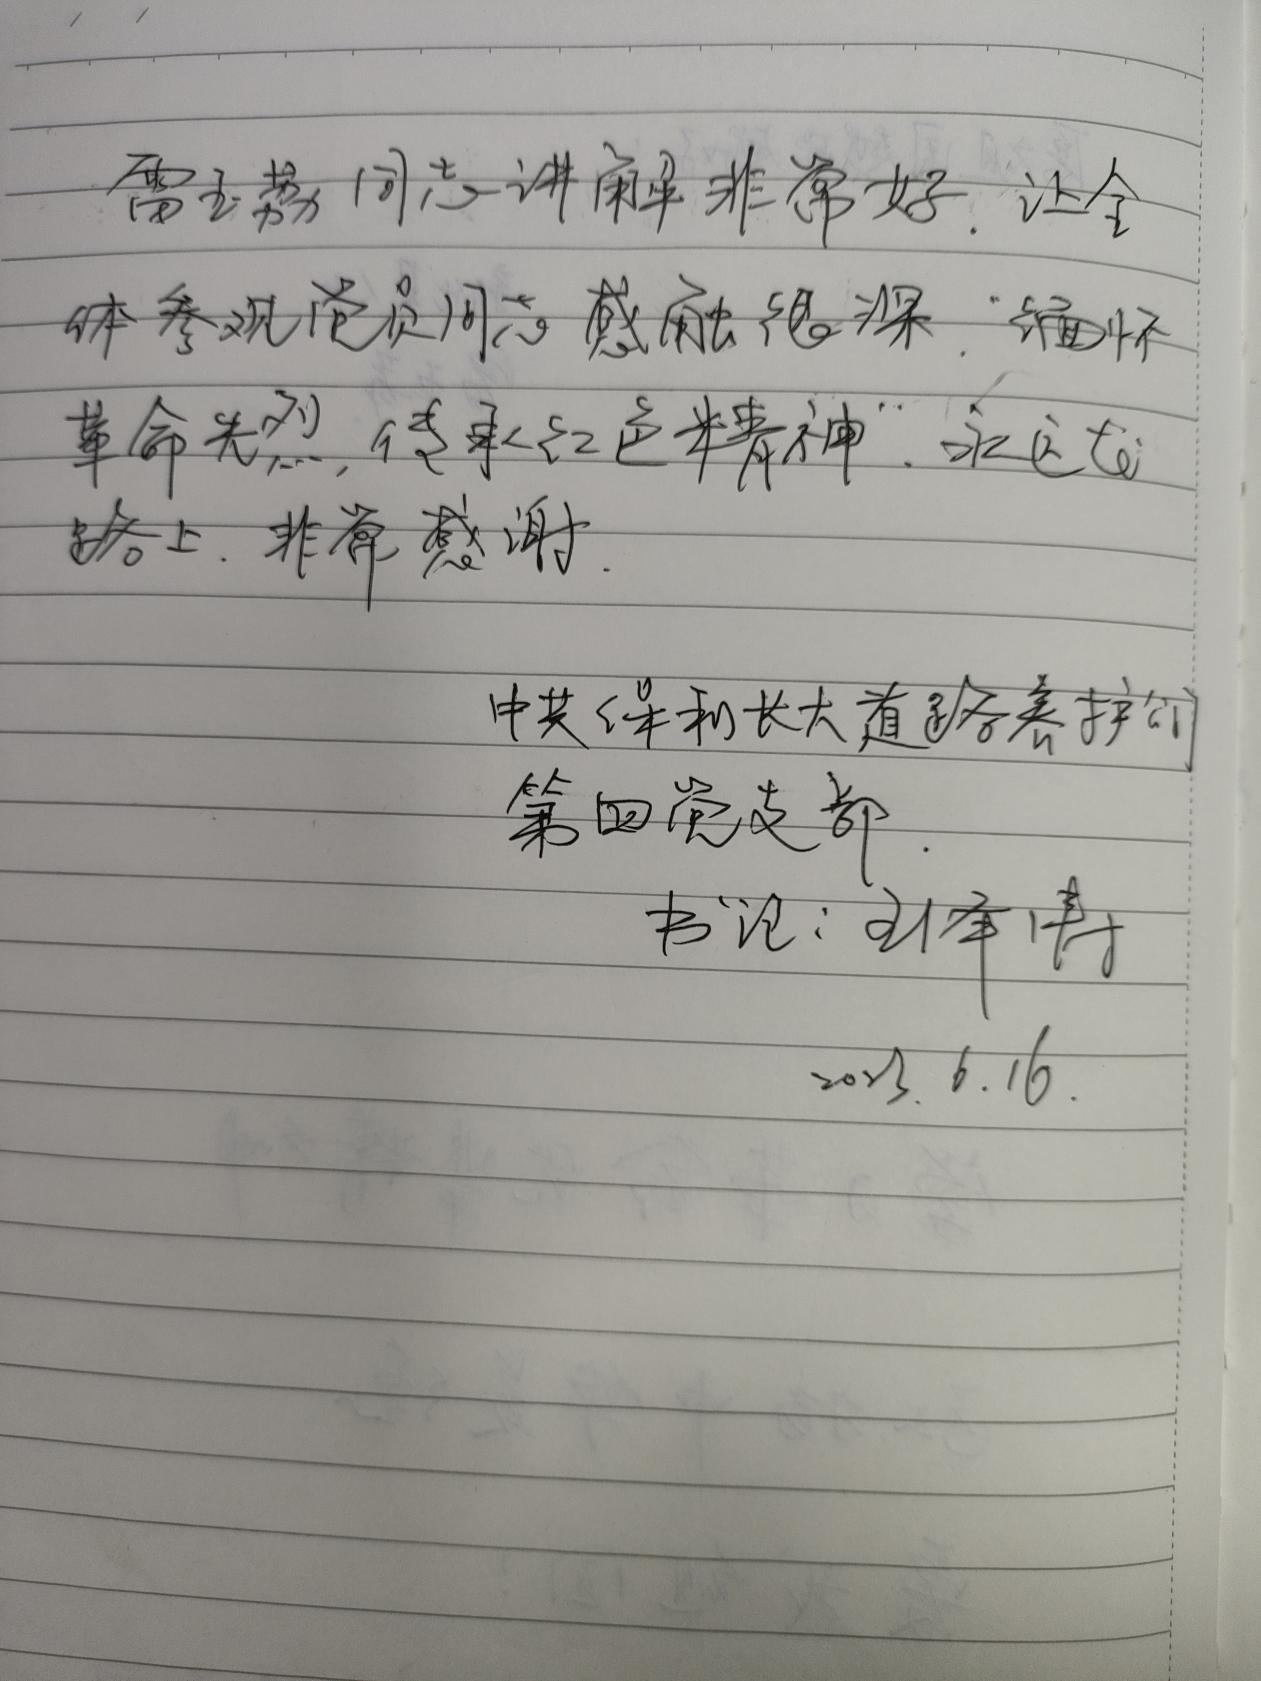 雷玉荔同志讲解非常好.让全
体参观党员同志感触很深."缅怀
革命先烈,传承红色精神".永远在
路上.非常感谢.
中共保利长大道路养护公司
第四党支部.
书记:刘泽博
2023.6.16.